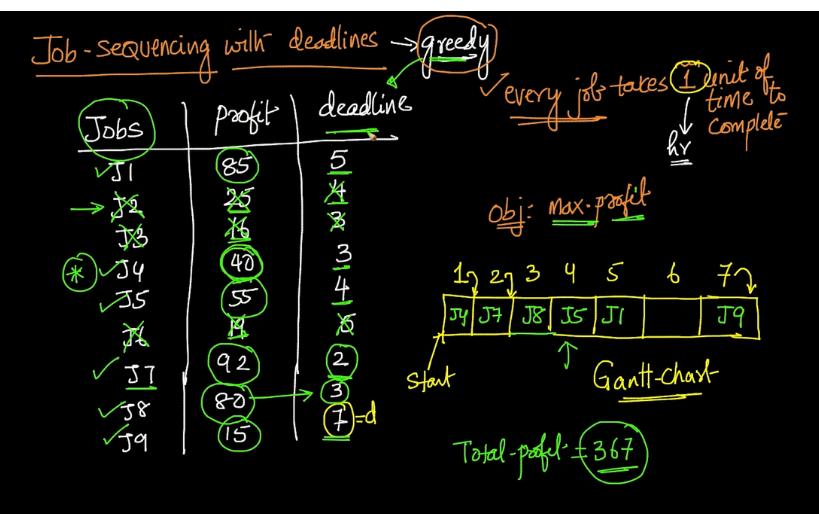 Job-sequencing with deadlines → greedy
✓ every job takes 1 unit of
time to
complete
hr
Jobs profit deadline
✓ J1 85 5
→ J2 25 4
J3 16 3
* ✓ J4 40 3
✓ J5 55 4
J6 19 5
✓ J7 92 2
✓ J8 80 → 3
✓ J9 15 7 = d
obj: max. profit
1 2 3 4 5 6 7
J4 J7 J8 J5 J1 J9
Start
Gantt-chart
Total-profit = 367